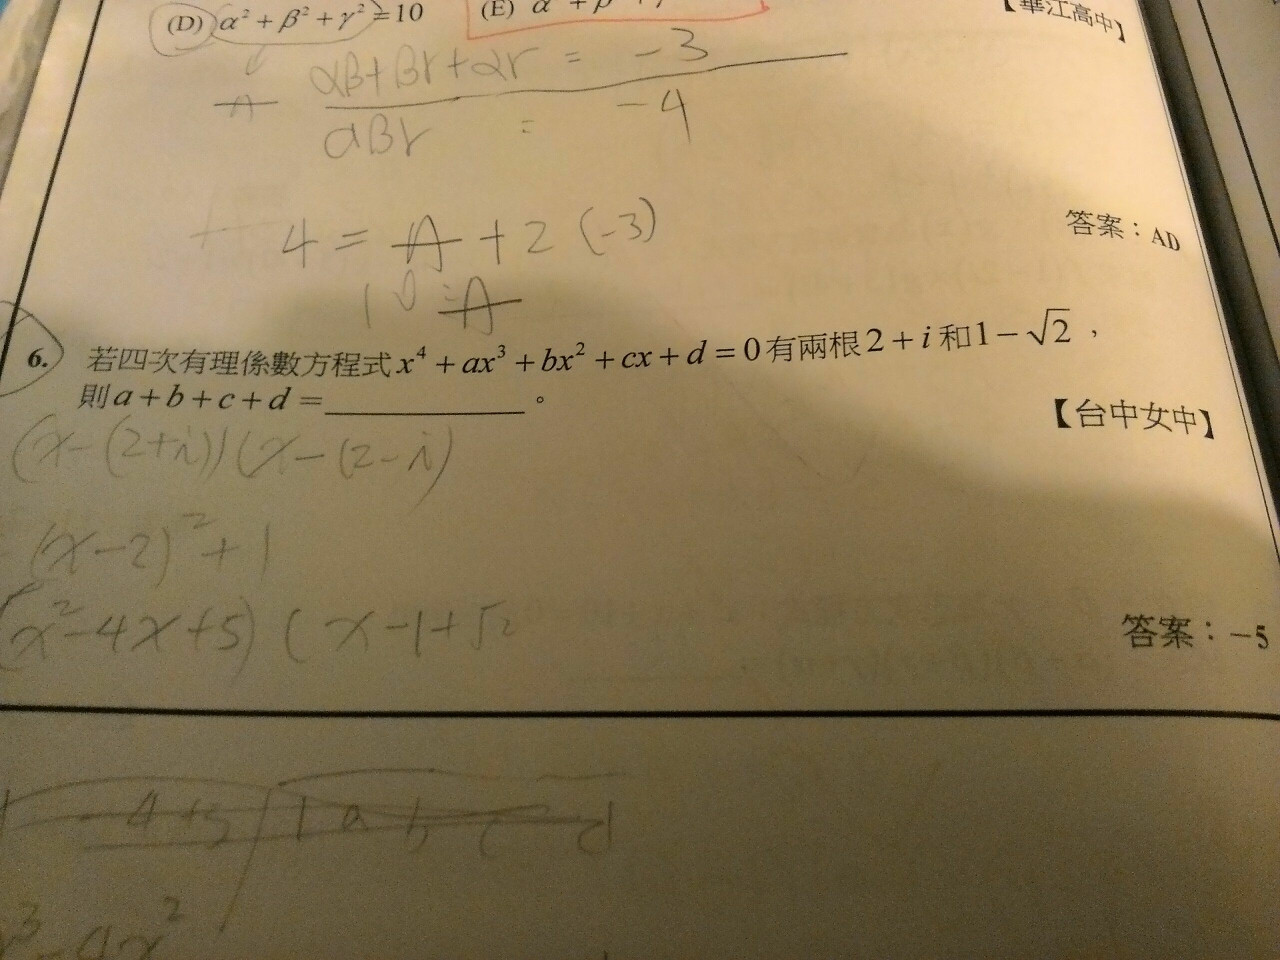 (D) α² + β² + γ² = 10 (E) α
【華江高中】
αβ+βγ+αγ = -3
A
αβγ = -4
4 = A + 2 (-3)
答案：AD
10 = A
6. 若四次有理係數方程式 x⁴ + ax³ + bx² + cx + d = 0 有兩根 2 + i 和 1 − √2 ，
則 a + b + c + d = __________ 。
【台中女中】
(x-(2+i))(x-(2-i)
(x-2)²+1
(x²-4x+5) (x-1+√2
答案：−5
-4+5 1 a b c d
x³-4x²